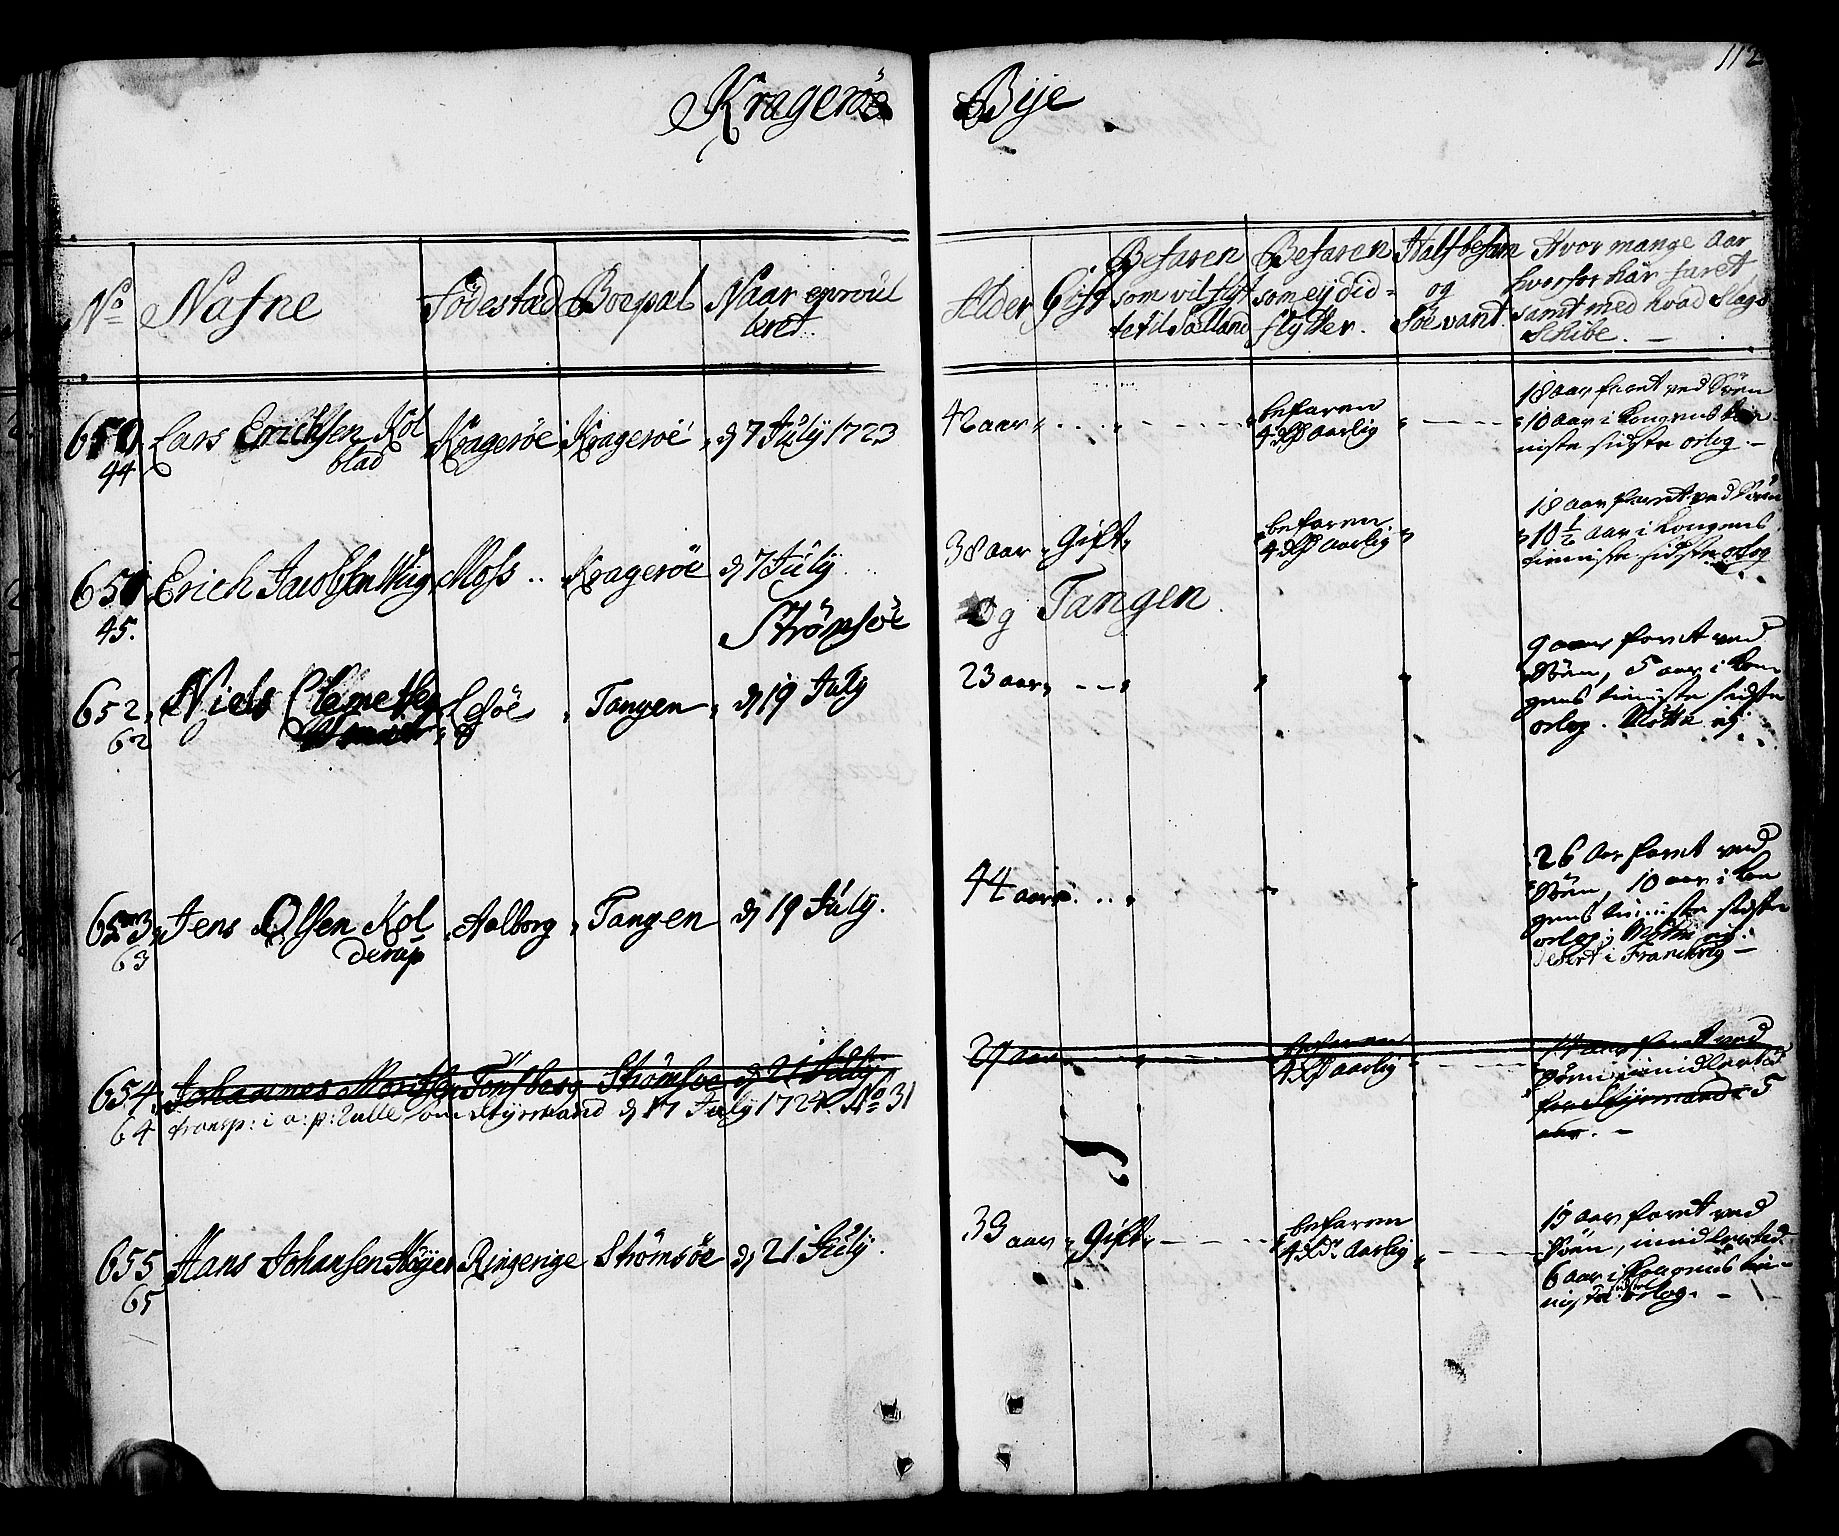 112
Kragerøe Bÿe
No Nafne Födestad Boepæl Naar enroul
leret.
Alder Gift Befaren som vil flÿt te til Sælland
Befaren som eÿ did flÿtter.
Halfbefaren og Söe vant
Hvor mange aar
hverfor hār faret,
samt med hvad Slags
Schibe.
650 Lars Erichsen Kol
blad Kragerøe Kragerøe d 7 Julÿ 1723
44
aar befaren
4 Rd aarlig
18 aar faret ved Söen
10 aar i Kongens tie
niste sidste orlog.
651 Erich Jacobsen Moss Kragerøe d 7 Julÿ
45.
38 aar Gift befaren
4 Rd aarlig
18 aar faret ved Söen
10 1/2 aar i Kongens
tieniste sidste orlog
Strömsöe og Tangen.
652 Niels Tangen d 19 Julÿ
62
23 aar
9 aar faret ved
Söen, 5 aar i Kon
gens tieniste sidste
orlog.
653 Jens Olsen Kol
derup Aalborg Tangen d 19 Julÿ.
63
44 aar
26 aar faret ved
Söen, 10 aar i Kon
gens tieniste sidste
orlog
i Franckrig
654 Johannes Tonsberg Strömsöe d 21 Julÿ
64 transp: i a: p: Rulle som Stÿrmand d 17 Julÿ 1724 No 31
27 aar befaren
4 Rd aarlig
aar faret ved
Söen imidlertid
for Stÿrmand 5
aar.
655 Hans Johansen Höÿer Ringerige Strömsöe d 21 Julÿ.
65
39 aar Gift befaren
4 Rd aarlig
15 aar faret ved
Söen, imidlertid
6 aar i Kongens tie
niste sidste orlog.